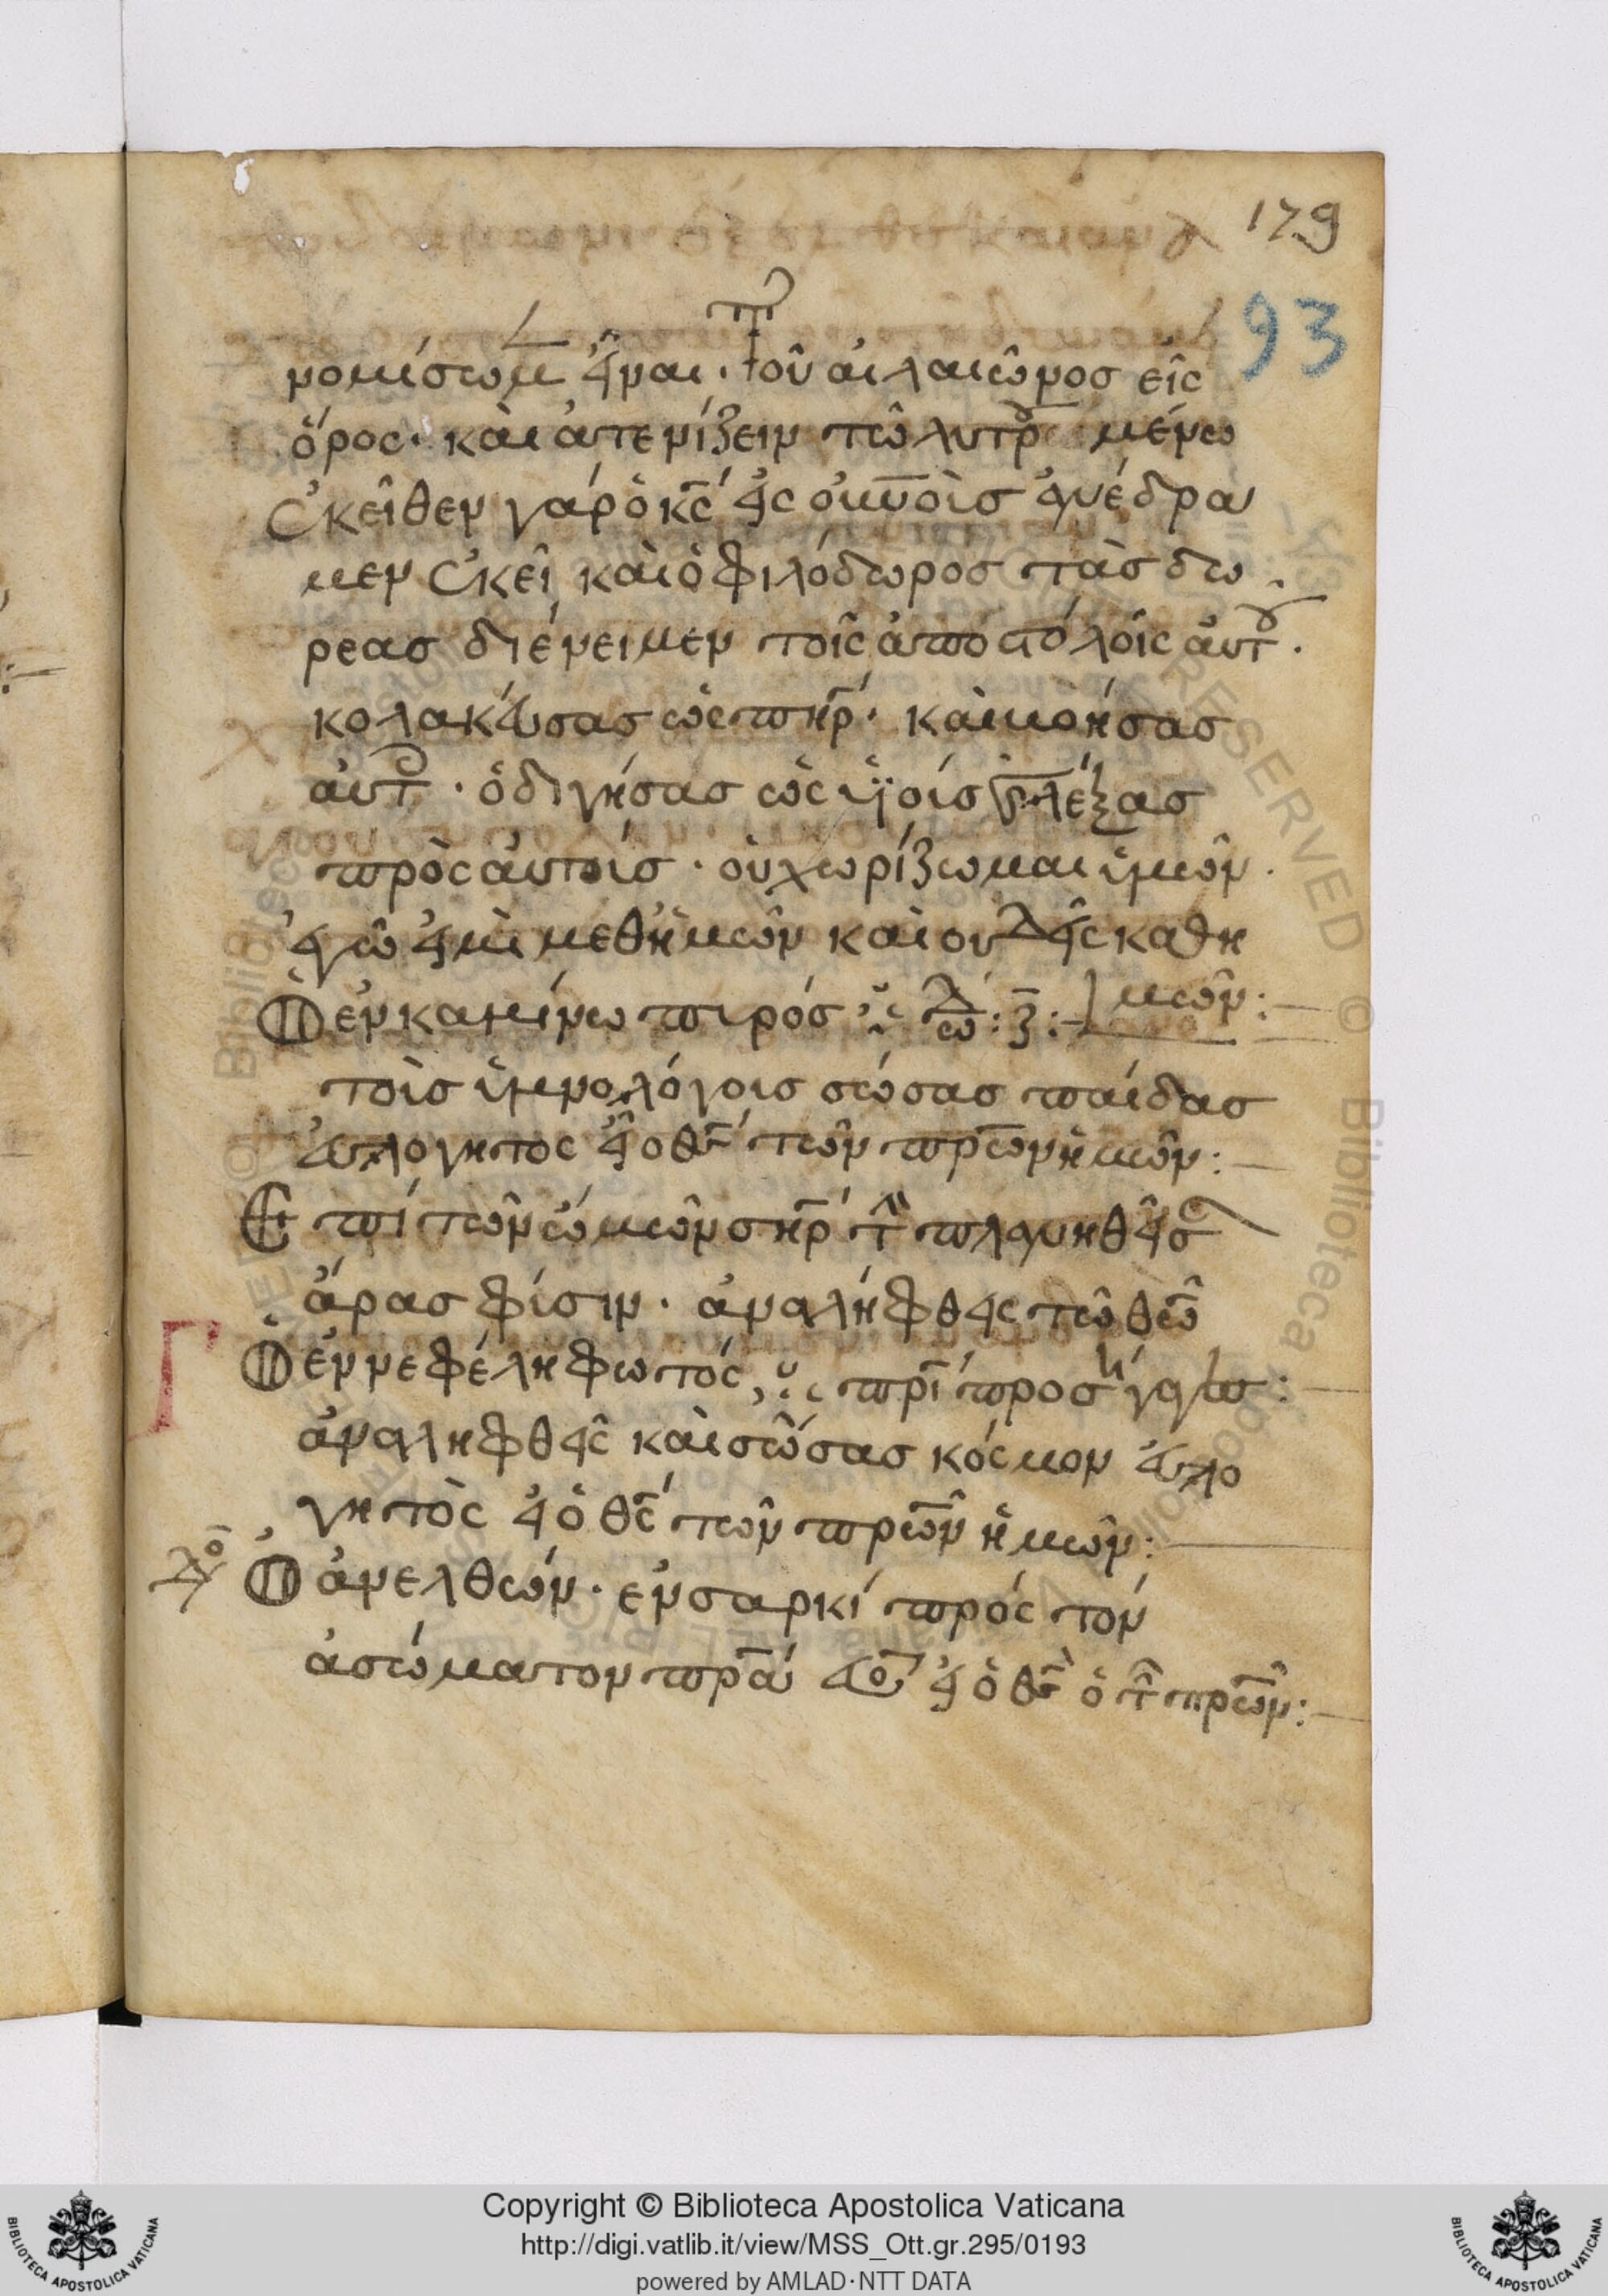 179
93
νομίσωμ εἶναι · τοῦ αιλαιῶνος εἰς
ὄρος · καὶ ἀτενίζειν τῶ λυτρ μένω
ἐκεῖθεν γάρ ὁ κς εἰς οὐνοὶσ ἀνέδρα
μεν ἐκεῖ καὶ ὁ φιλόδωροσ τὰσ δω
ρεασ διένειμεν τοῖς ἀποστόλοις ἀυτ .
κολακεύσασ ὡς πηρ · καὶ μονήσασ
ἀυτ · ὁδιγήσασ ὡς ϋϊοίσ λέξασ
πρὸς ἀυτοίσ · οὐ χωρίζωμαι ὑμῶν .
ἐγῶ εἰμὶ μεθ ἡμῶν καὶ ουδεῖς καθη
μῶν :
Ὁ ἐν καμίνω πιρόσ
τοὶσ ὑμνολόγοισ σώσασ παίδασ
ἐυλογητος εἶ ο θς τῶν πρων ἡμῶν :
Ἐπί τῶν ώμῶν σηρ τ πλανηθεῖσ
άρασ φίσιν · ἀναλήφθεις τῶ θεῶ
Γ
Ὁ ἐν νεφέλη φωτός πρι προσήγαγ :
ἀναληφθεὶς καὶ σώσασ κόσμον ἐυλο
γητὸς εἶ ὁ θς τῶν πρων ἡμῶν :
Ὁ ἀνελθών · εν σαρκί πρός τόν
ἀσώματον πρα εἶ ὁ θς ὁ τ πρων :
Copyright © Biblioteca Apostolica Vaticana
http://digi.vatlib.it/view/MSS_Ott.gr.295/0193
powered by AMLAD·NTT DATA
BIBLIOTECA APOSTOLICA VATICANA
BIBLIOTECA APOSTOLICA VATICANA